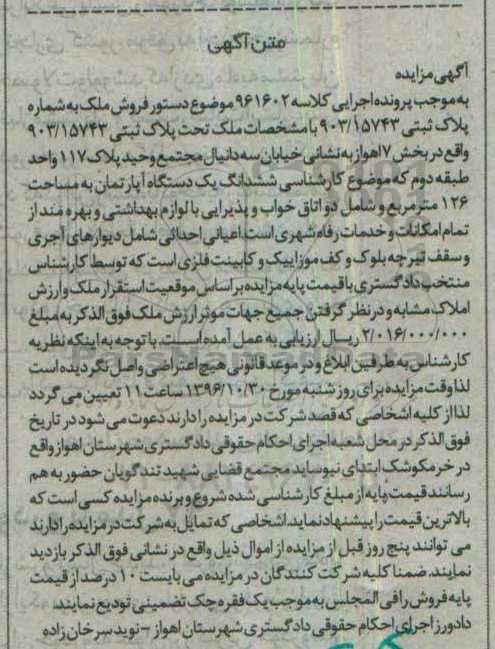 متن آگهی
آگهی مزایده
به موجب پرونده اجرایی کلاسه ۹۶۱۶۰۲ موضوع دستور فروش ملک به شماره
پلاک ثبتی ۹۰۳/۱۵۷۴۳ با مشخصات ملک تحت پلاک ثبتی ۹۰۳/۱۵۷۴۳
واقع در بخش ۷ اهواز به نشانی خیابان سه دانیال مجتمع وحید پلاک ۱۱۷ واحد
طبقه دوم که موضوع کارشناسی ششدانگ یک دستگاه آپارتمان به مساحت
۱۲۶ مترمربع و شامل دو اتاق خواب و پذیرایی با لوازم بهداشتی و بهره مند از
تمام امکانات و خدمات رفاه شهری است. اعیانی احداثی شامل دیوارهای آجری
و سقف تیرچه بلوک و کف موزاییک و کابینت فلزی است که توسط کارشناس
منتخب دادگستری با قیمت پایه مزایده بر اساس موقعیت استقرار ملک و ارزش
املاک مشابه و در نظر گرفتن جمیع جهات موثر ارزش ملک فوق الذکر به مبلغ
۲/۰۱۶/۰۰۰/۰۰۰ ریال ارزیابی به عمل آمده است. با توجه به اینکه نظریه
کارشناس به طرفین ابلاغ و در موعد قانونی هیچ اعتراضی واصل نگردیده است
لذا وقت مزایده برای روز شنبه مورخ ۱۳۹۶/۱۰/۳۰ ساعت ۱۱ تعیین می گردد
لذا از کلیه اشخاصی که قصد شرکت در مزایده را دارند دعوت می شود در تاریخ
فوق الذکر در محل شعبه اجرای احکام حقوقی دادگستری شهرستان اهواز واقع
در خرمکوشک ابتدای نیوساید مجتمع قضایی شهید تندگویان حضور به هم
رسانند قیمت پایه از مبلغ کارشناسی شده شروع و برنده مزایده کسی است که
بالاترین قیمت را پیشنهاد نماید. اشخاصی که تمایل به شرکت در مزایده را دارند
می توانند پنج روز قبل از مزایده از اموال ذیل واقع در نشانی فوق الذکر بازدید
نمایند. ضمنا کلیه شرکت کنندگان در مزایده می بایست ۱۰ درصد از قیمت
پایه فروش را فی المجلس به موجب یک فقره چک تضمینی تودیع نمایند.
دادورز اجرای احکام حقوقی دادگستری شهرستان اهواز – نوید سرخان زاده
ParsNamadData